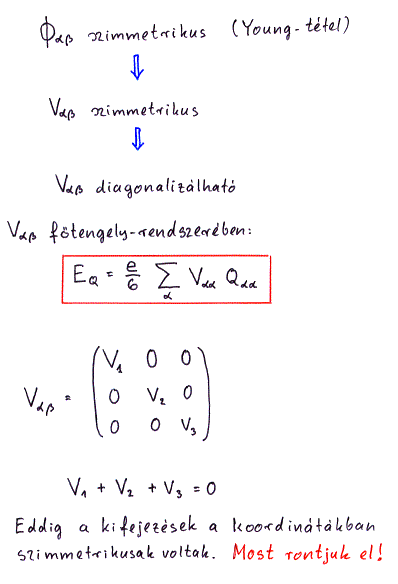 ϕαβ szimmetrikus (Young-tétel)
⇓
Vαβ szimmetrikus
⇓
Vαβ diagonalizálható
Vαβ főtengely-rendszerében:
E_Q = e/6 ∑_α V_αα Q_αα
Vαβ = ( V₁ 0 0
0 V₂ 0
0 0 V₃ )
V₁ + V₂ + V₃ = 0
Eddig a kifejezések a koordinátákban
szimmetrikusak voltak. Most rontjuk el!